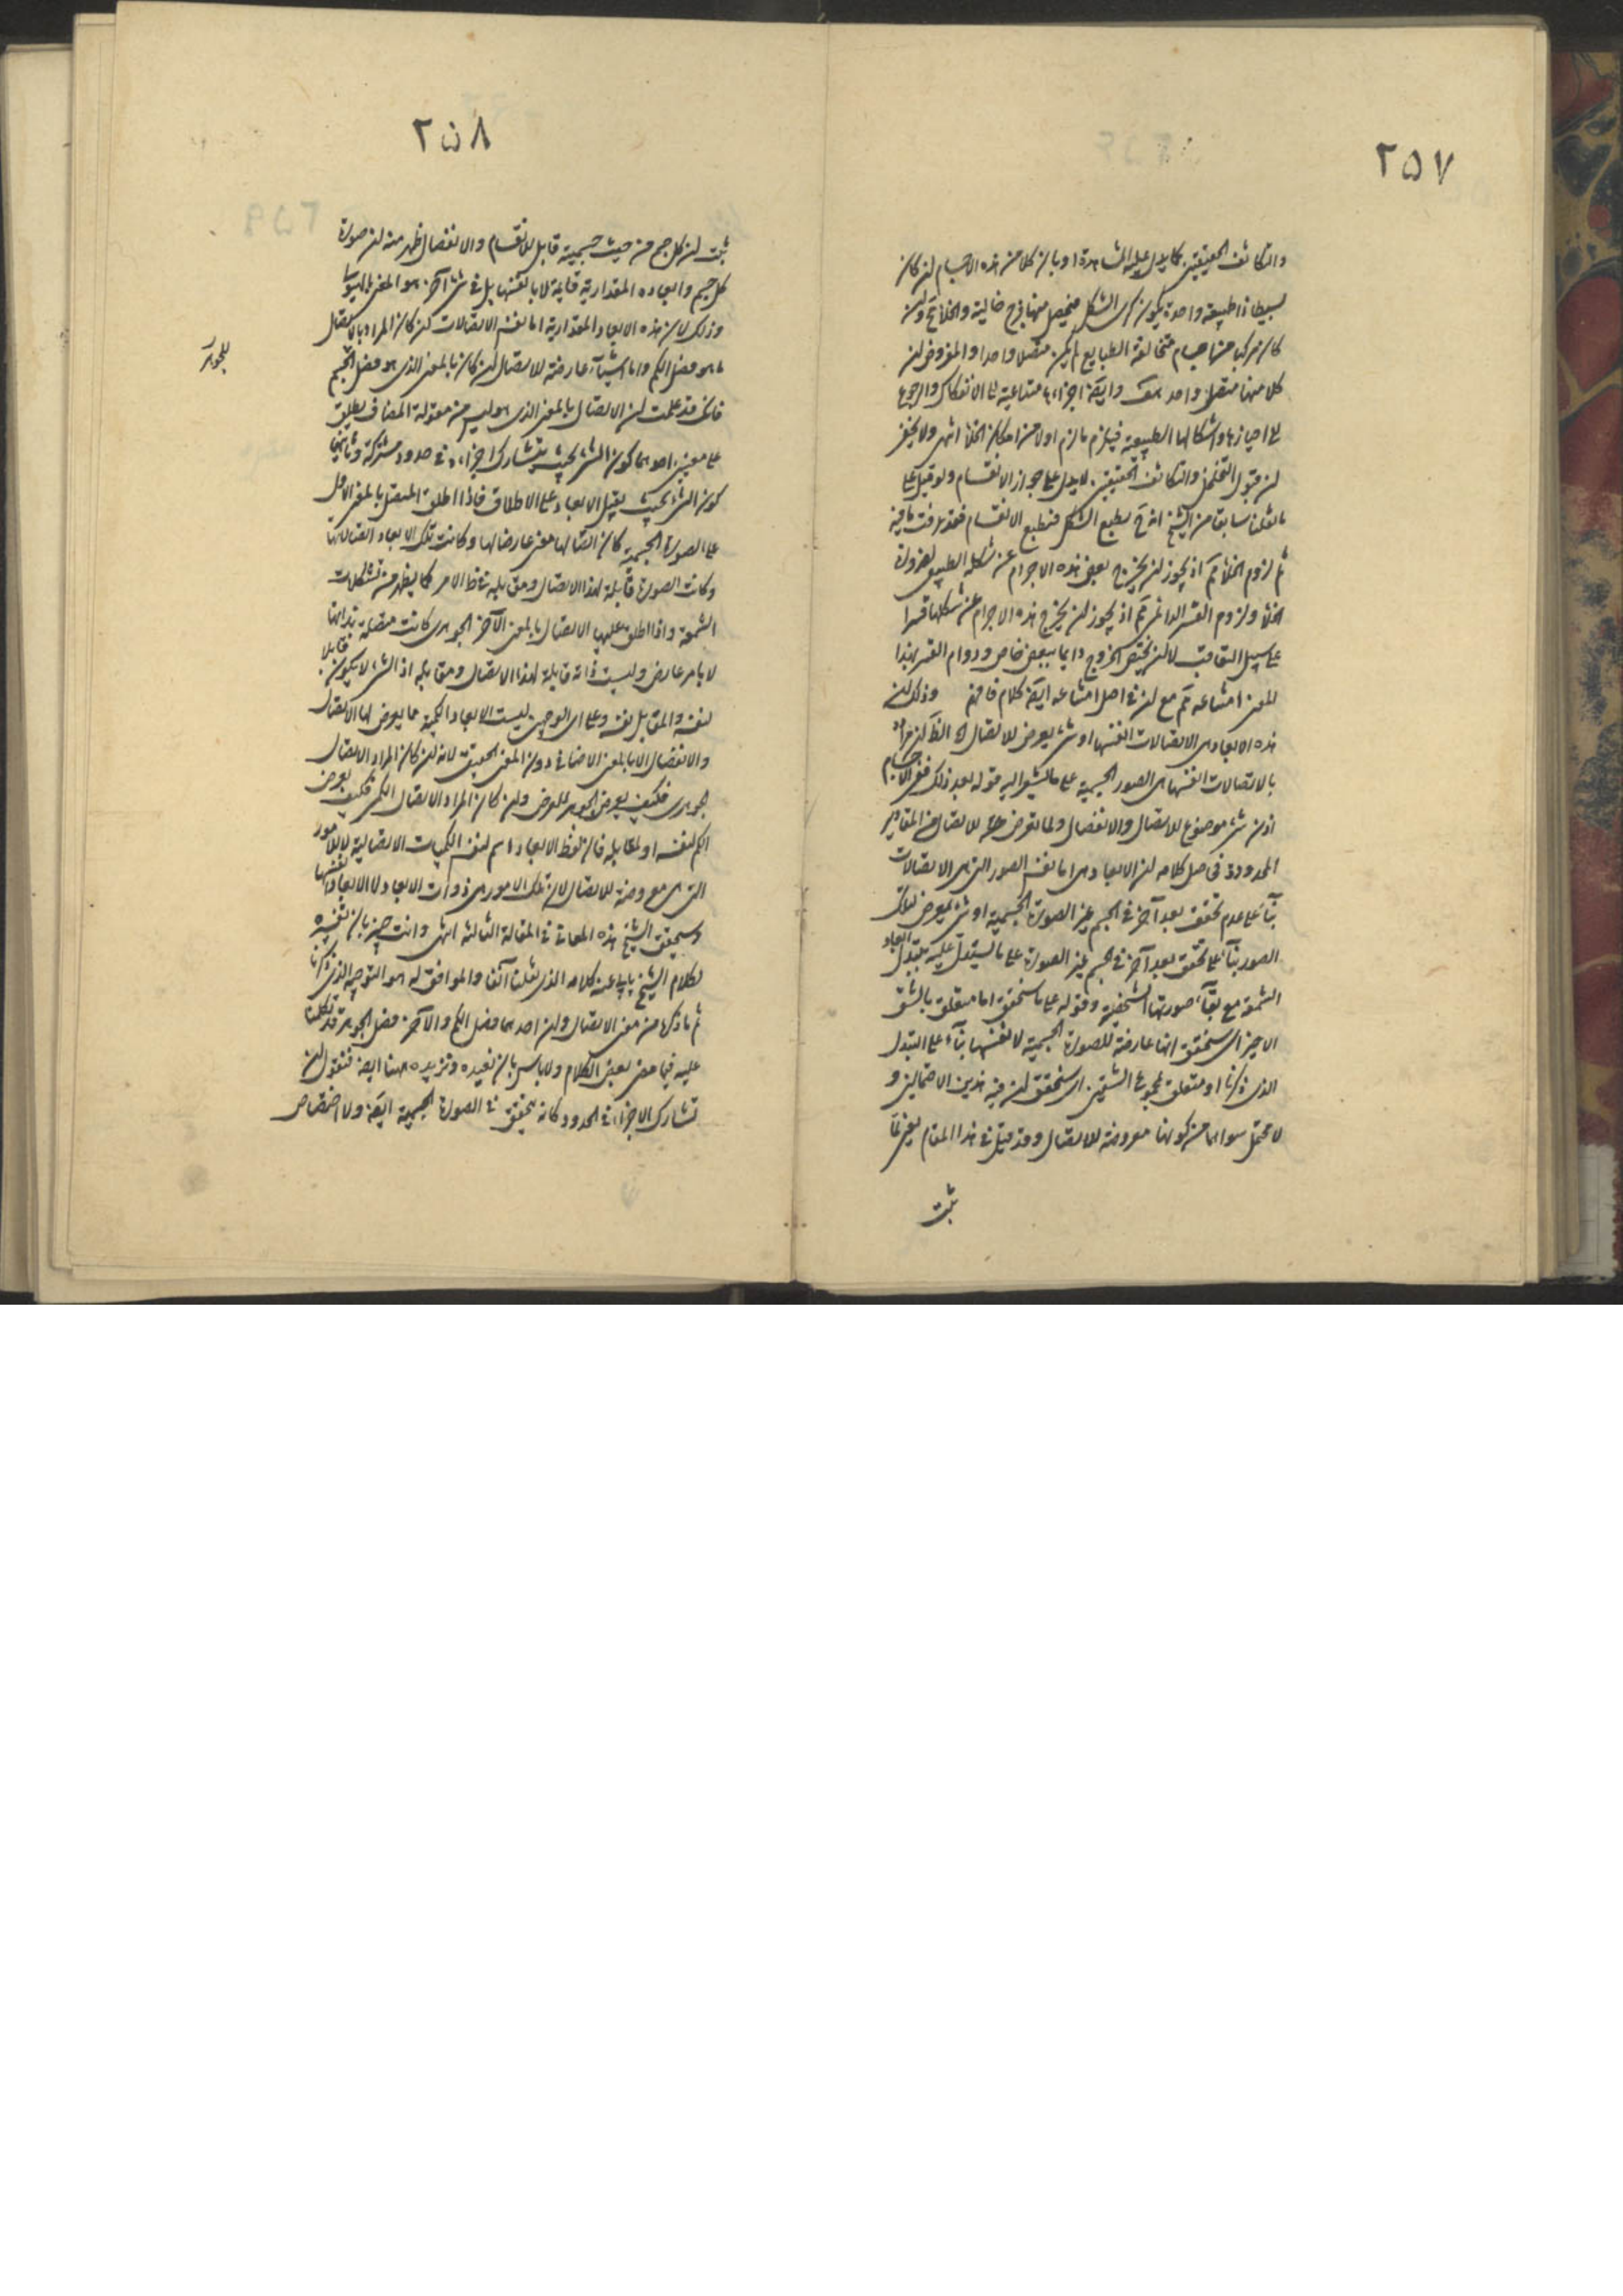 ٢٥٧
والتكاثف الحقيقيين كما يدل عليه المشاهدة او بان كلا من هذه الاجسام ان كان
بسيطا ذا طبيعة واحدة يكون كرى الشكل فيحصل منها فرج خالية والخلأ مح وان
كان مركبا من اجسام متخالفة الطبايع لم يكن متصلا واحدا والمفروض ان
كلا منها متصل واحد هف وايضا اجزاءها متداعية الى الانفكاك والرجوع
الى احيازها واشكالها الطبيعية فيلزم ما لزم اولا من امكان الخلأ انتهى ولا يخفى
ان قبول التخلخل والتكاثف الحقيقيين لا يدل على جواز الانقسام ولو قيل على
ما نقلنا سابقا من الشيخ انه ح بطبع الشكل فبطبع الانقسام فقد عرفت ما فيه
ثم لزوم الخلأ مم اذ يجوز ان يخرج بعض هذه الاجرام عن شكله الطبيعى لضرورة
الخلأ ولزوم القسر الدائمى مم اذ يجوز ان يخرج هذه الاجرام عن شكلها قسرا
على سبيل التعاقب لا ان يختص الخروج دايما ببعض خاص ودوام القسر بهذا
المعنى امتناعه مم مع ان فى اصل امتناعه ايضا كلام فافهم وذلك ان
هذه الابعاد هى الاتصالات انفسها او شئ يعرض للاتصال الظ ان مراده
بالاتصالات انفسها هى الصور الجسمية على ما يشير اليه قوله بعد ذلك ففى الاجسام
اذن شئ موضوع للاتصال والانفصال ولما تعرض للاتصال من المقادير
المحدودة فحاصل كلامه ان الابعاد هى اما نفس الصور التى هى الاتصالات
بنآء على عدم تحقق بعد آخر فى الجسم غير الصورة الجسمية او شئ يعرض لتلك
الصور بنآء على تحقق بعد آخر فى الجسم غير الصورة على ما يستدل عليه بتبدل ابعاد
الشمعة مع بقآء صورتها الشخصية وقوله على ما سنحقق اما متعلق بالشق
الاخير اى سنحقق انها عارضة للصورة الجسمية لا نفسها بنآء على التبدل
الذى ذكرنا او متعلق بمجموع الشقين اى سنحقق ان فيه هذين الاحتمالين و
لا محتمل سواهما من كونها معروضة للاتصال وقد قيل فى هذا المقام يعنى لما
ثبت
٢٥٨
ثبت ان كل جسم من حيث جسميته قابل للانقسام والانفصال ظهر منه ان صورة
كل جسم وابعاده المقدارية قايمة لا بانفسها بل فى شئ آخر هو المعنى بالهيولى
وذلك لان هذه الابعاد المقدارية اما نفس الاتصالات ان كان المراد بالاتصال
ما هو فصل الكم واما اشيآء عارضة للاتصال ان كان بالمعنى الذى هو فصل الجسم
فانك قد علمت ان الاتصال بالمعنى الذى هو ليس من مقولة المضاف يطلق
على معنيين احدهما كون الشئ بحيث يتشارك اجزاءه فى حدود مشتركة وثانيهما
كون الشئ بحيث يقبل الابعاد على الاطلاق فاذا اطلق المتصل بالمعنى الاول
على الصورة الجسمية كان اتصالها معنى عارضا لها وكانت تلك الابعاد اتصالاتها
وكانت الصورة قابلة لهذا الاتصال ومقابله فى ظ الامر كما يظهر من تشكلات
الشمعة واذا اطلق عليها الاتصال بالمعنى الآخر الجوهرى كانت متصلة بذاتها
لا بامر عارض وليست ذاته قابلة لهذا الاتصال ومقابله اذ الشئ لا يكون قابلا
لنفسه والمقابل نفسه وعلى اى الوجهين ليست الابعاد الكمية مما يعرض لها الاتصال
والانفصال الا بالمعنى الاضافى دون المعنى الحقيقى لانه ان كان المراد الاتصال
الجوهرى فكيف يعرض الجوهر للعرض وان كان المراد الاتصال الكمى فكيف يعرض
الكم لنفسه او لمقابله فان لفظ الابعاد اسم لنفس الكميات الاتصالية لا للامور
التى هى معروضة للاتصال لان تلك الامور هى ذوات الابعاد لا الابعاد انفسها
وسيحقق الشيخ هذه المعانى فى المقالة الثالثة انتهى وانت خبير بان تفسيره
لكلام الشيخ يابى عنه كلامه الذى نقلنا آنفا والموافق له هو التوجيه الذى ذكرنا
ثم ما ذكره من معنى الاتصال وان احدهما فصل الكم والآخر فصل الجوهر قد تكلمنا
عليه فيما مضى بعض الكلام ولا باس بان نعيده ونزيده ههنا ايضا فنقول ان
تشارك الاجزاء فى الحدود كانه يتحقق فى الصورة الجسمية ايضا ولا اختصاص